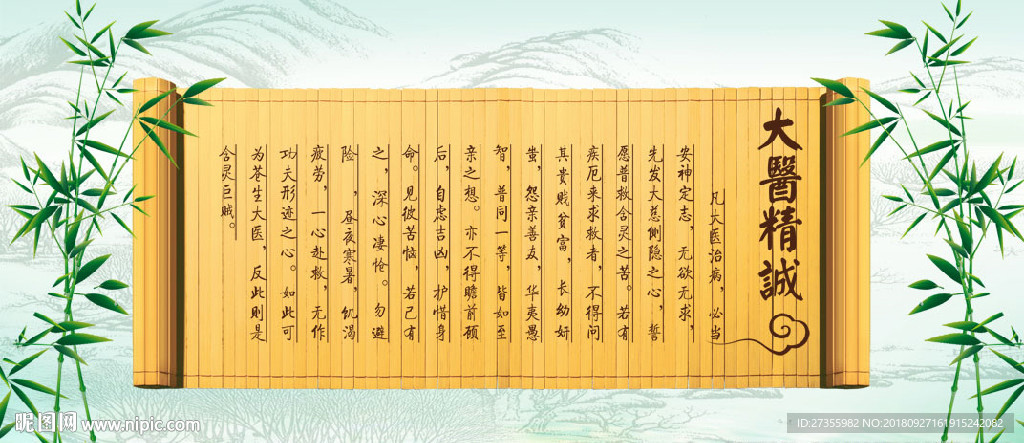 大醫精誠
凡大医治病，必当
安神定志，无欲无求，
先发大慈恻隐之心，誓
愿普救含灵之苦。若有
疾厄来求救者，不得问
其贵贱贫富，长幼妍
蚩，怨亲善友，华夷愚
智，普同一等，皆如至
亲之想。亦不得瞻前顾
后，自虑吉凶，护惜身
命。见彼苦恼，若己有
之，深心凄怆。勿避
险，昼夜寒暑，饥渴
疲劳，一心赴救，无作
功夫形迹之心。如此可
为苍生大医，反此则是
含灵巨贼。
昵图网 www.nipic.com
ID:27355982 NO:20180927161915242082